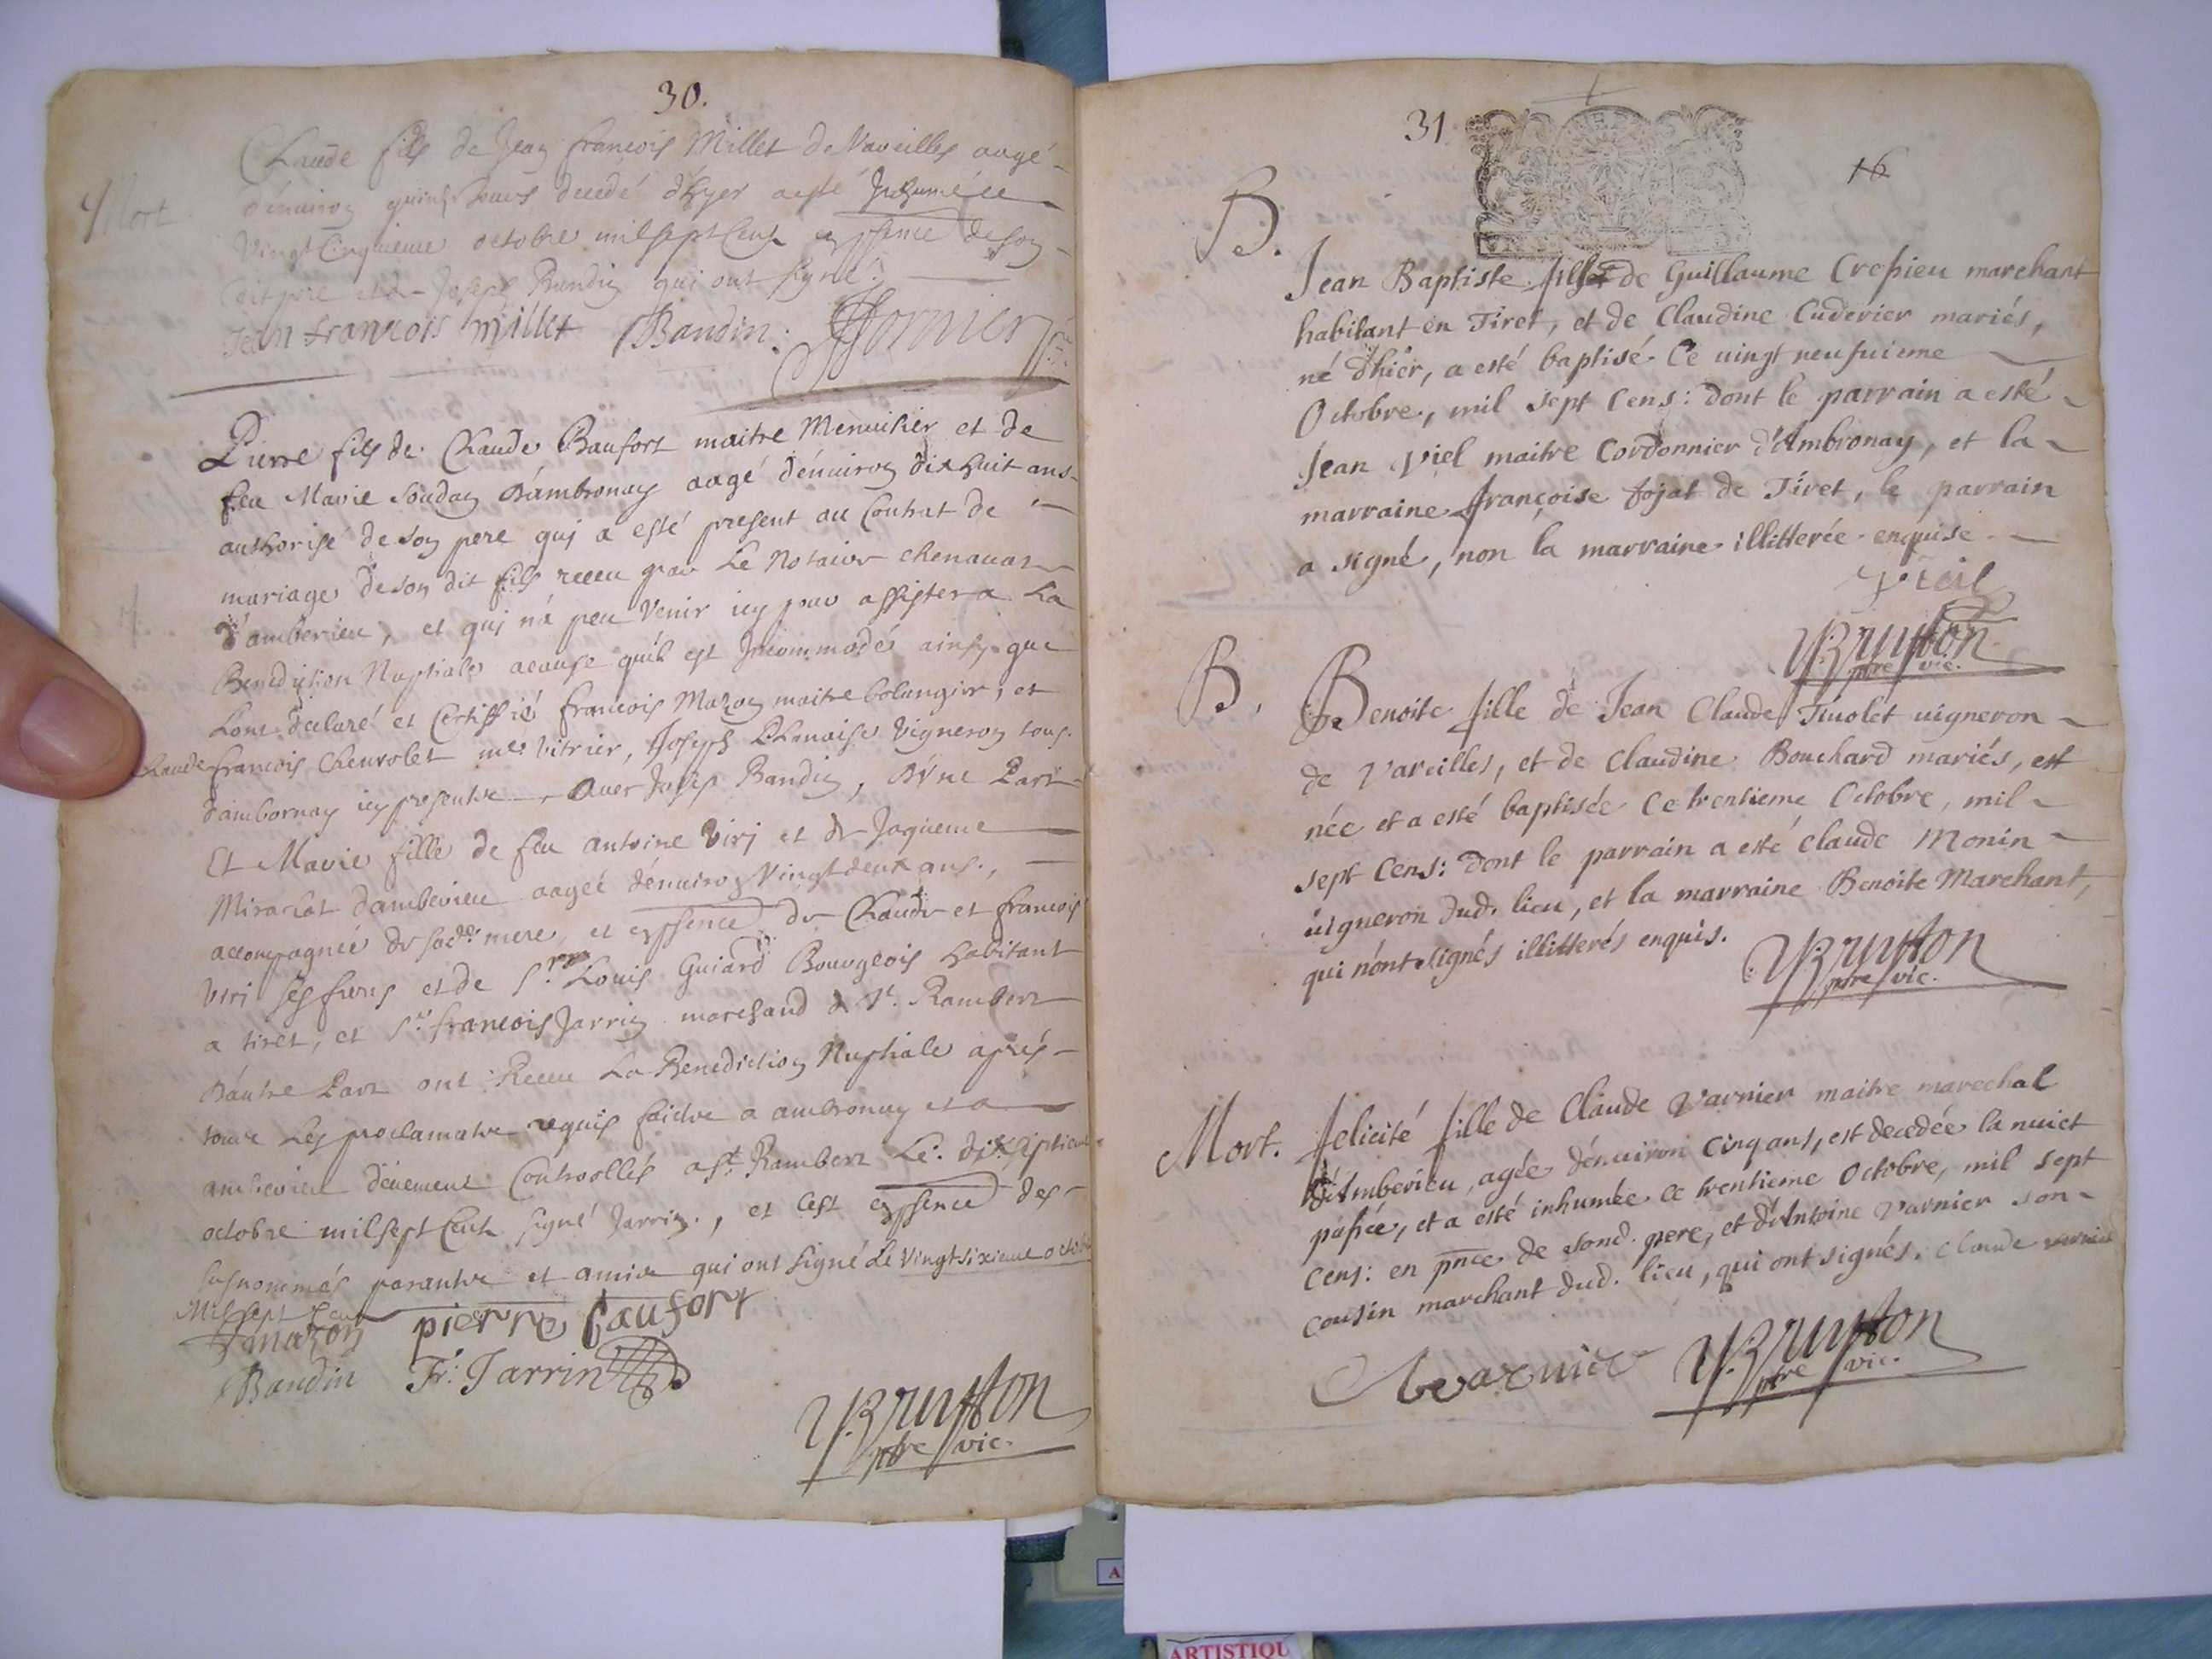 30.
Mort
Claude fils de Jean francois Millet de Vareilles aagé
d'enuiron quinze Jours decedé d'hyer a esté Inhumé ce
Vingt Cinquieme octobre mil sept Cent en psence de son
dit pere et de Joseph Baudin qui ont signé.
Jean francois millet Baudin.
Pierre fils de Claude Baufort maitre Menuisier et de
feu Marie Soudan d'ambronay aagé d'enuiron dix huit ans
authorisé de son pere qui a esté present au Contrat de
mariage de son dit fils receu par Le Notaire chenauar
d'amberieu, et qui n'a peu Venir icy pour assister a La
Benediction Nuptiale acause qu'il est Incommodé ainsy que
L'ont declaré et Certiffié francois Mazon maitre bolangier, et
Claude francois Cheurolet me. Vitrier, Joseph Vigneron tous
d'ambornay icy presentre, Auec Josep Baudin, D'vne Part
Et Marie fille de feu antoine Viri et de Jaqueme
d'amberieu aagée d'enuiron Vingt deux ans.,
accompagnée de sade. mere, et en psence de Claude et francois
Viri ses freres et de Sr. Louis Guiard Bourgeois habitant
a tiret, et Sr. francois Jarrin marchand de St. Rambert
D'autre Part ont Receu La Benediction Nuptiale aprés
toutre Les proclamatre requis faictre a ambronay et a
amberieu deuement Controollés a St. Rambert Le. dix septieme
octobre mil sept Cent signé Jarrin., et cest en psence des
susnommés parantre et amire qui ont signé Le Vingt sixieme octobre
Mil sept Cent
mazon pierre baufort
Baudin Fr: Jarrin
Bruyston
ptre vic.
31
16
B.
Jean Baptiste fils de Guillaume Crepieu marchant
habitant en Tiret, et de Claudine Cuderier mariés,
né d'hier, a esté baptisé Ce uingt neufuieme
Octobre, mil sept Cens: dont le parrain a esté
Jean Viel maitre Cordonnier d'Ambronay, et la
marraine françoise fojat de Tiret, le parrain
a signé, non la marraine illitterée enquise.
Vieil
Bruyston
ptre vic.
B.
Benoite fille de Jean Claude Tiuolet uigneron
de Vareilles, et de Claudine Bouchard mariés, est
née et a esté baptisée Ce trentieme Octobre, mil
sept Cens: dont le parrain a esté Claude Monin
uigneron dud. lieu, et la marraine Benoite Marchant,
qui n'ont signés illitterés enquis.
Bruyston
ptre vic.
Mort.
felicité fille de Claude Varnier maitre marechal
d'Amberieu, agée d'enuiron Cinq ans, est decedée la nuict
passée, et a esté inhumée ce trentieme Octobre, mil sept
Cens: en pnce de sond. pere, et d'Antoine Varnier son
cousin marchant dud. lieu, qui ont signés. Claude varnier
Bruyston
ptre vic.
ARTISTIQU